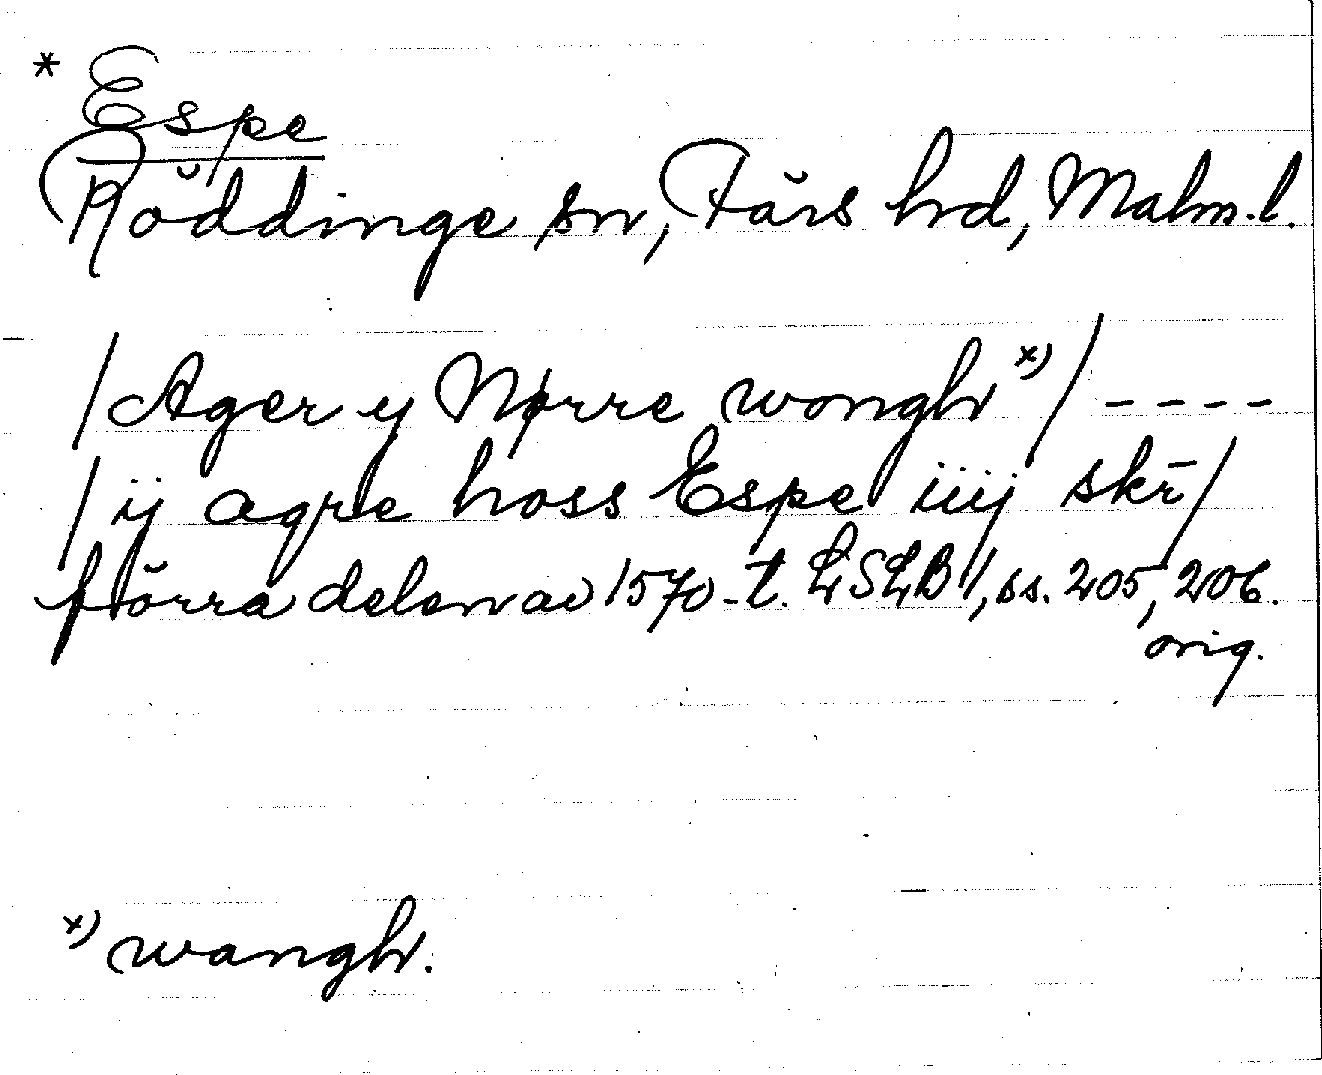 * Espe
Röddinge sn, Färs hd, Malm.l.
/Ager y Nørre wongh x)/ ----
/ij agre hoss Espe iiij skr̄/
förra delen av 1570-t. LSLB 1, ss. 205, 206.
orig.
x) wangh.